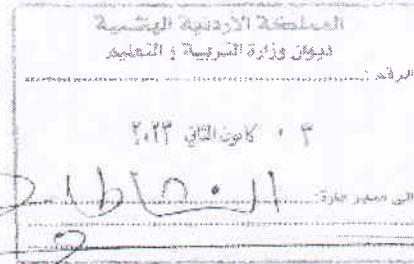 المملكة الأردنية الهاشمية
ديوان وزارة التربية و التعليم
الرقم :
٣٠ كانون الثاني ٢٠٢٣
الى مدير ادارة